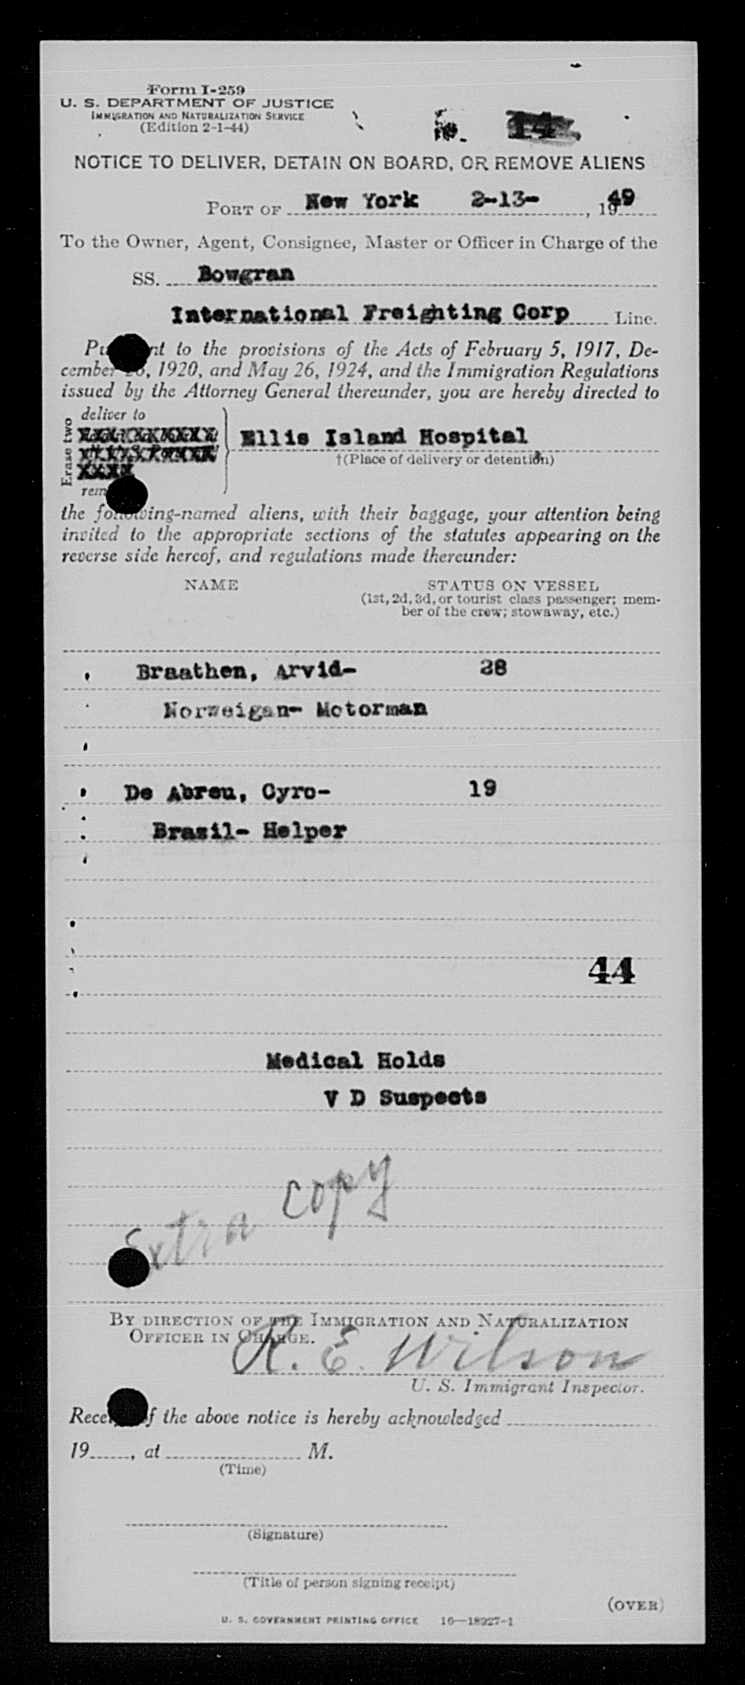 Form I-259
U. S. DEPARTMENT OF JUSTICE
IMMIGRATION AND NATURALIZATION SERVICE
(Edition 2-1-44)
14
NOTICE TO DELIVER, DETAIN ON BOARD, OR REMOVE ALIENS
PORT OF New York 2-13- , 1949
To the Owner, Agent, Consignee, Master or Officer in Charge of the
SS. Bowgran
International Freighting Corp Line.
Pu nt to the provisions of the Acts of February 5, 1917, De-
cember , 1920, and May 26, 1924, and the Immigration Regulations
issued by the Attorney General thereunder, you are hereby directed to
deliver to
Erase two
Ellis Island Hospital
†(Place of delivery or detention)
rem
the following-named aliens, with their baggage, your attention being
invited to the appropriate sections of the statutes appearing on the
reverse side hereof, and regulations made thereunder:
NAME STATUS ON VESSEL
(1st, 2d, 3d, or tourist class passenger; mem-
ber of the crew; stowaway, etc.)
Braathen, Arvid- 28
Norweigan- Motorman
De Abreu, Cyro- 19
Brasil- Helper
44
Medical Holds
V D Suspects
Extra copy
BY DIRECTION OF THE IMMIGRATION AND NATURALIZATION
OFFICER IN CHARGE.
R. E. Wilson
U. S. Immigrant Inspector.
Rece f the above notice is hereby acknowledged
19 , at M.
(Time)
(Signature)
(Title of person signing receipt)
(OVER)
U. S. GOVERNMENT PRINTING OFFICE 16—18927-1